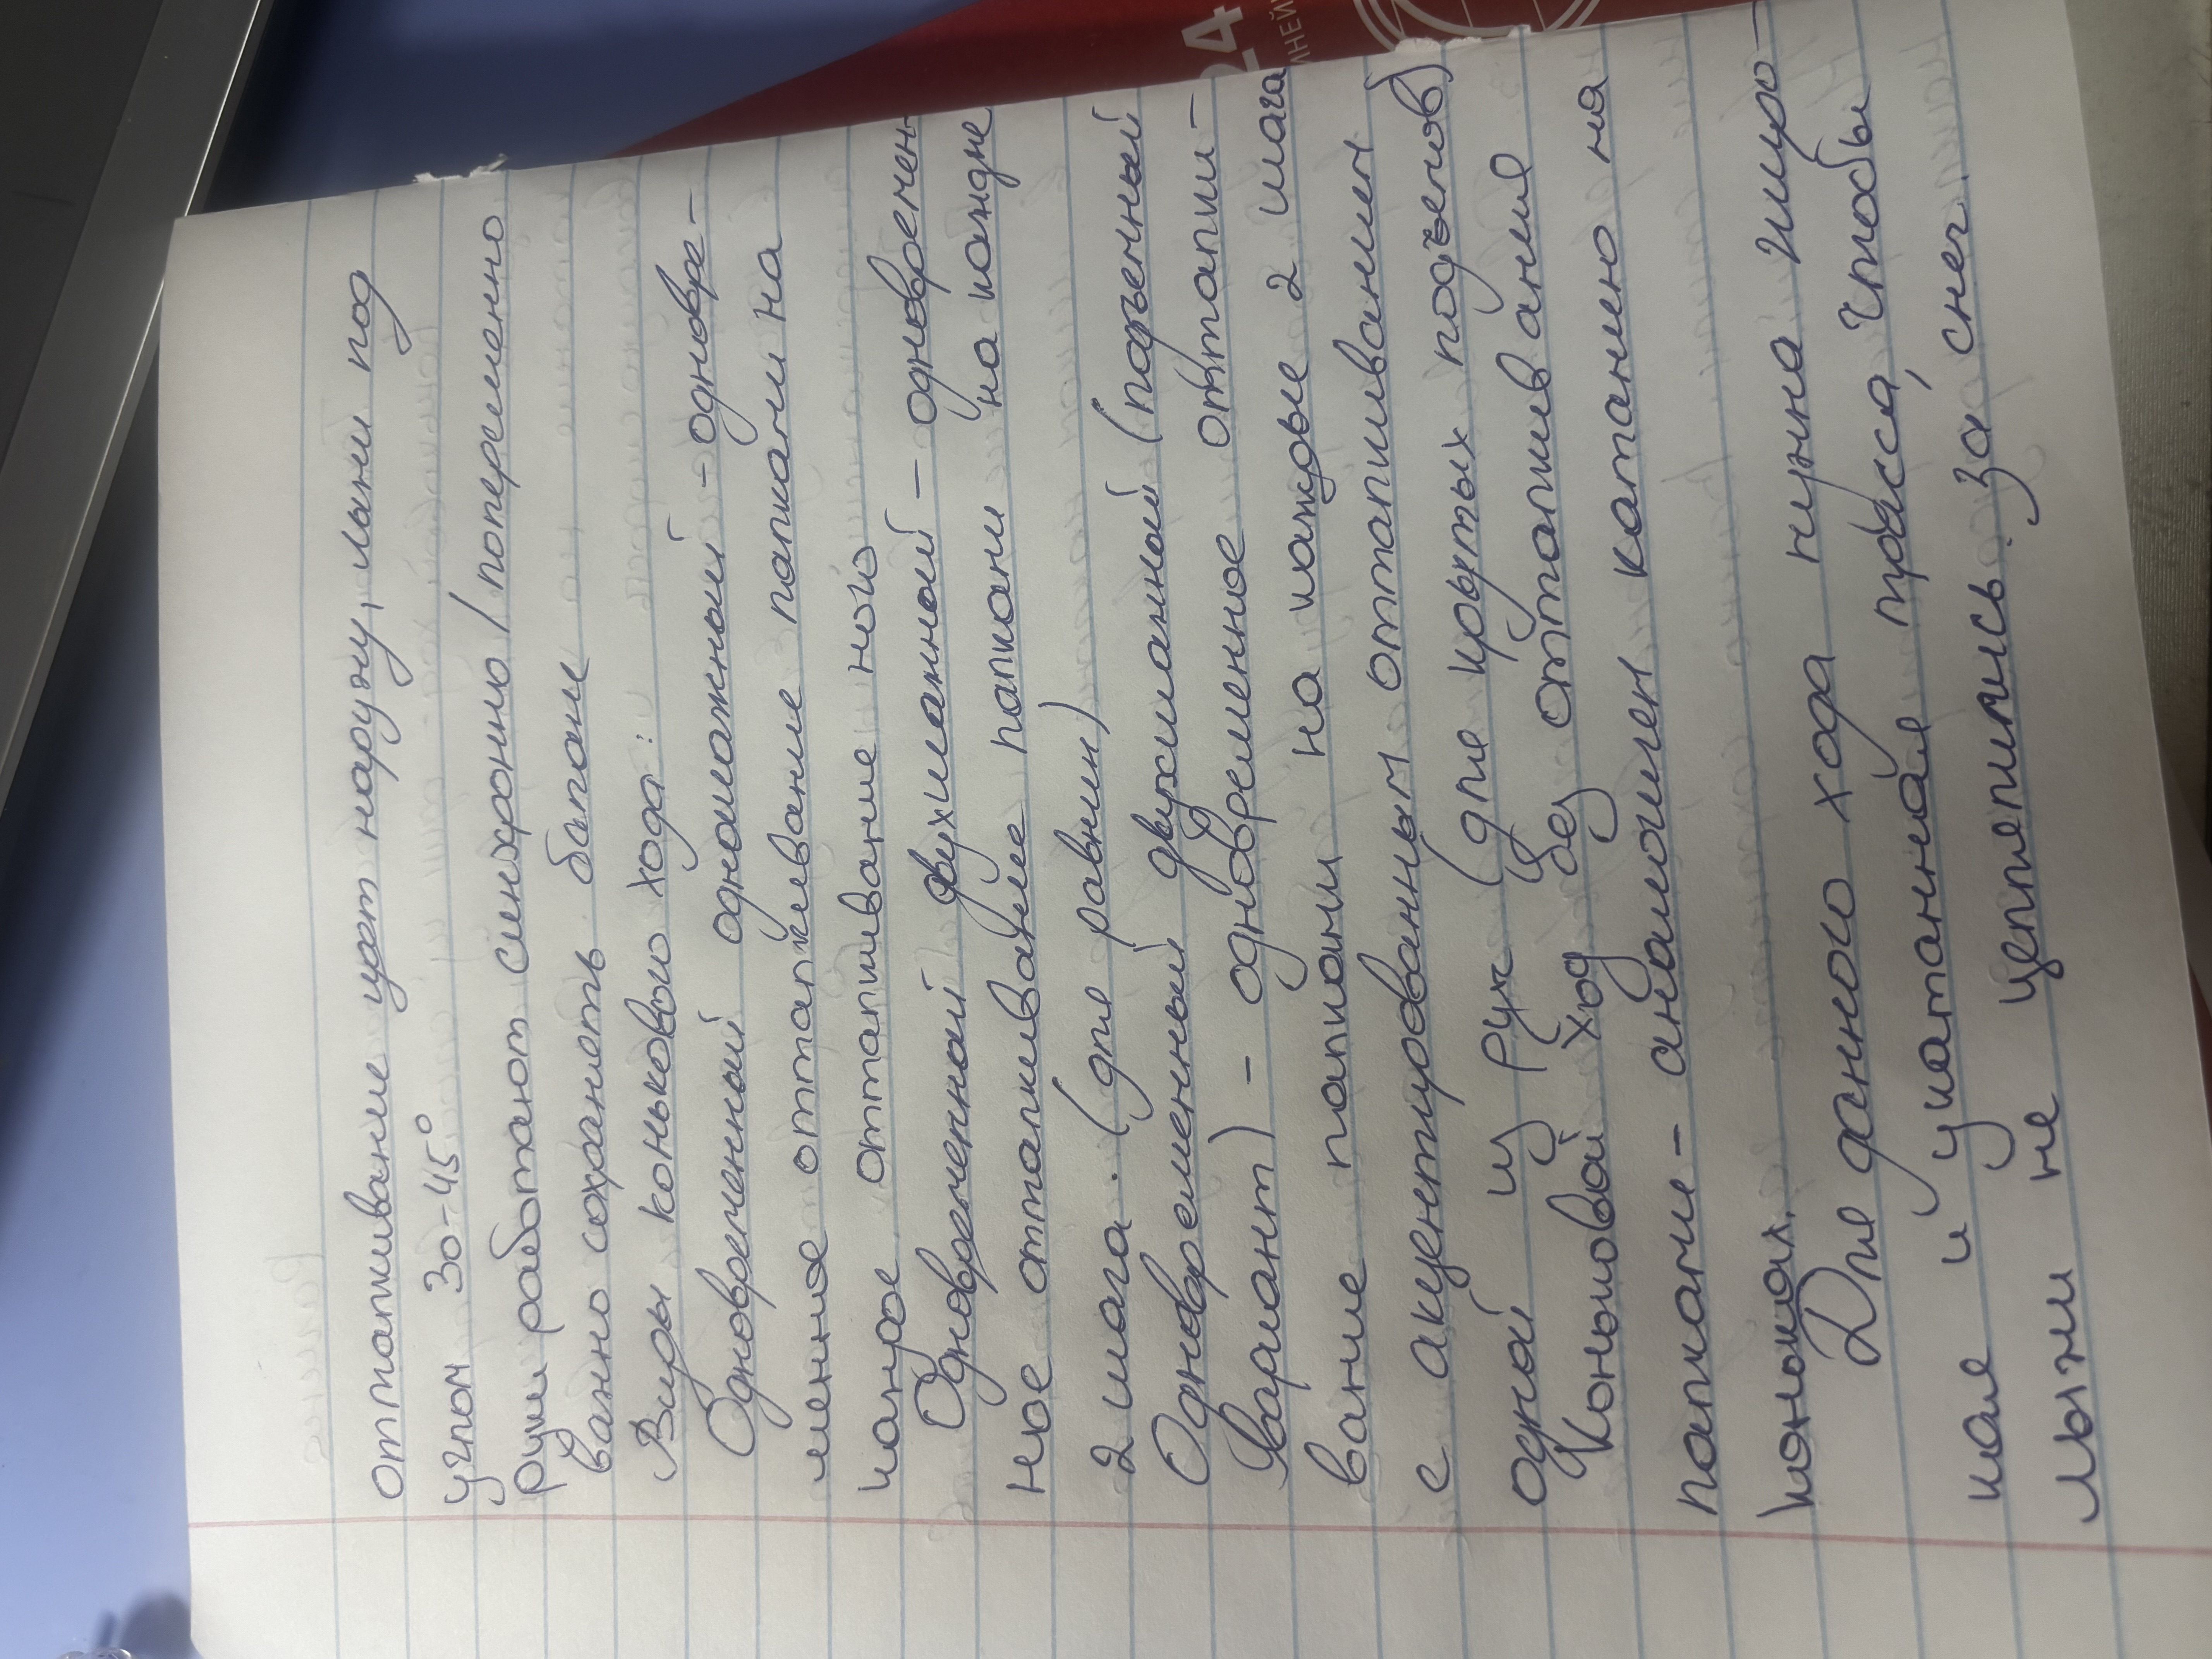 отталкивание идёт наружу, лыжи под
углом 30-45°
руки работают синхронно / попеременно
важно сохранять баланс
Виды конькового хода:
Одновременный одношажный - одновре-
менное отталкивание палками на
каждое отталкивание ногой
Одновременный двухшажный - одновремен-
ное отталкивание палками на каждые
2 шага. (для равнин)
Одновременный двухшажный (подъемный
вариант) - одновременное отталки-
вание палками на каждые 2 шага
с акцентированным отталкиванием
одной из рук (для крутых подъемов)
Коньковый ход без отталкивания
палками - аналогичен катанию на
коньках.
Для данного хода нужна широ-
кая и укатанная трасса, чтобы
лыжи не цеплялись за снег
24